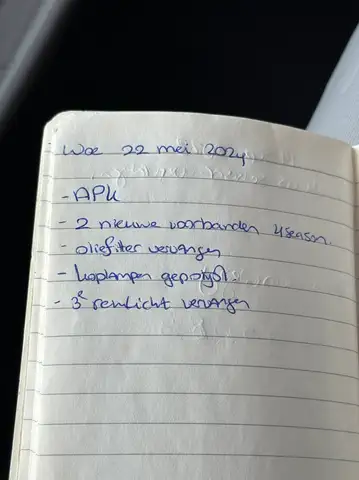 Woe 22 mei 2024
- APK
- 2 nieuwe voorbanden 4season.
- oliefilter vervangen
- koplampen gepolijst.
- 3e remlicht vervangen